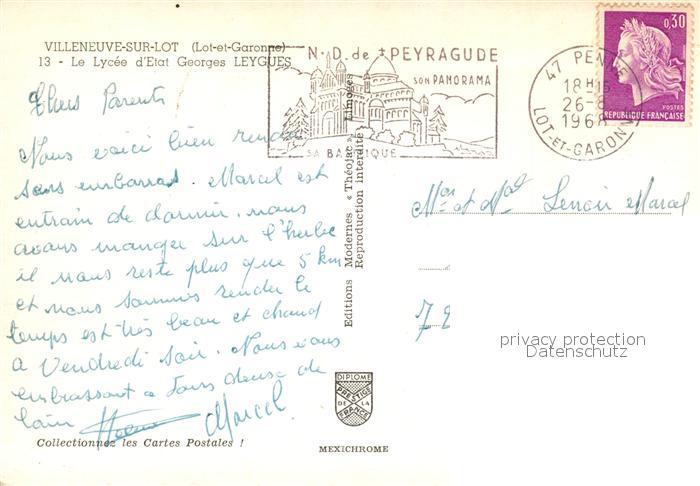 VILLENEUVE-SUR-LOT (Lot-et-Garonne)
13 - Le Lycée d'Etat Georges LEYGUES
Chers Parents
Nous voici bien rendu
sans embarras. Marcel est
entrain de dormir. nous
avons manger sur l'herbe
il nous reste plus que 5 km
et nous sommes render le
temps est très beau et chaud
a Vendredi soir. Nous vous
embrassont a tous deux de
loin
Marcel
Collectionnez les Cartes Postales !
N.D. de PEYRAGUDE
SON PANORAMA
SA BASILIQUE
47 PENNE
18H15
26-8
1968
LOT-ET-GARONNE
0,30
POSTES
REPUBLIQUE FRANÇAISE
Editions Modernes « Théojac » Limoges
Reproduction interdite
Mon. et Mad. Lenoir Marcel
72
privacy protection
Datenschutz
DIPLOME
PRESTIGE
DE LA
FRANCE
MEXICHROME